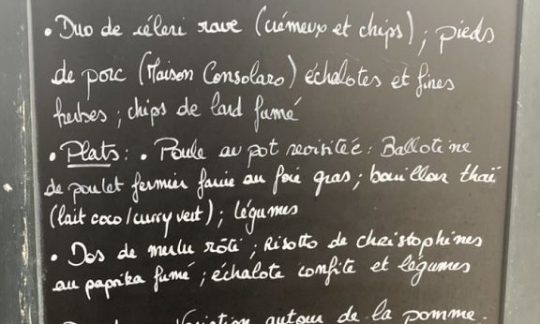 • Duo de céleri rave (crémeux et chips) ; pieds
de porc (Maison Consolaro) échalotes et fines
herbes ; chips de lard fumé
• Plats : • Poule au pot revisitée : Ballotine
de poulet fermier farcie au foie gras ; bouillon thaï
(lait coco/curry vert) ; légumes
• Dos de merlu rôti ; Risotto de christophines
au paprika fumé ; échalote confite et légumes
Variation autour de la pomme.